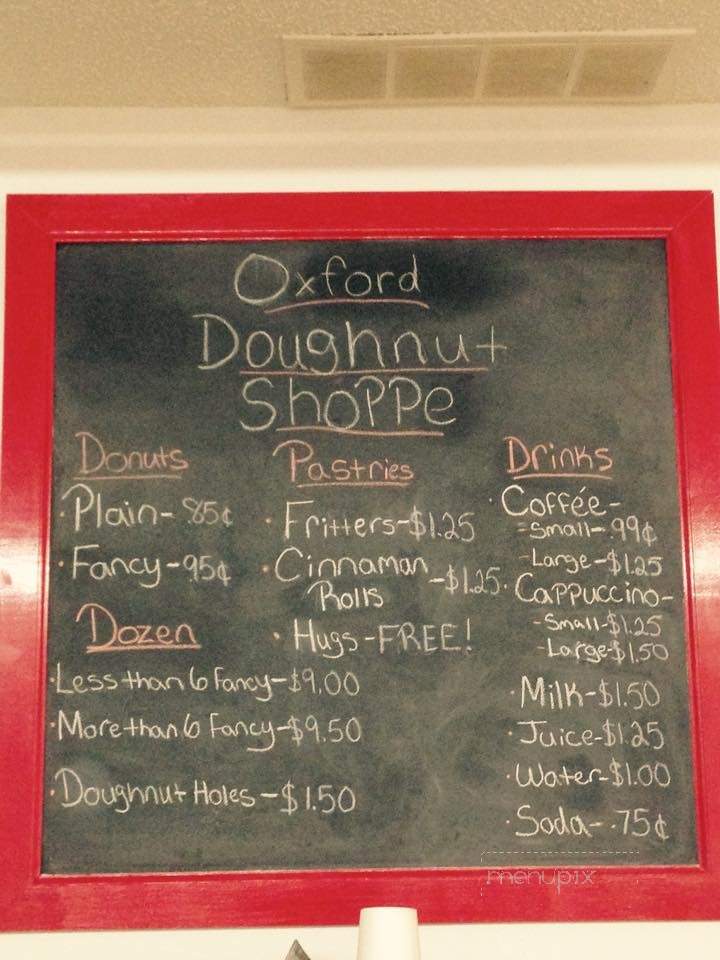 Oxford
Doughnut
Shoppe
Donuts
· Plain - .85¢
· Fancy - .95¢
Dozen
· Less than 6 Fancy - $9.00
· More than 6 Fancy - $9.50
· Doughnut Holes - $1.50
Pastries
· Fritters - $1.25
· Cinnamon
Rolls - $1.25
· Hugs - FREE!
Drinks
· Coffée -
- Small - .99¢
- Large - $1.25
· Cappuccino -
- Small - $1.25
- Large - $1.50
· Milk - $1.50
· Juice - $1.25
· Water - $1.00
· Soda - .75¢
menupix